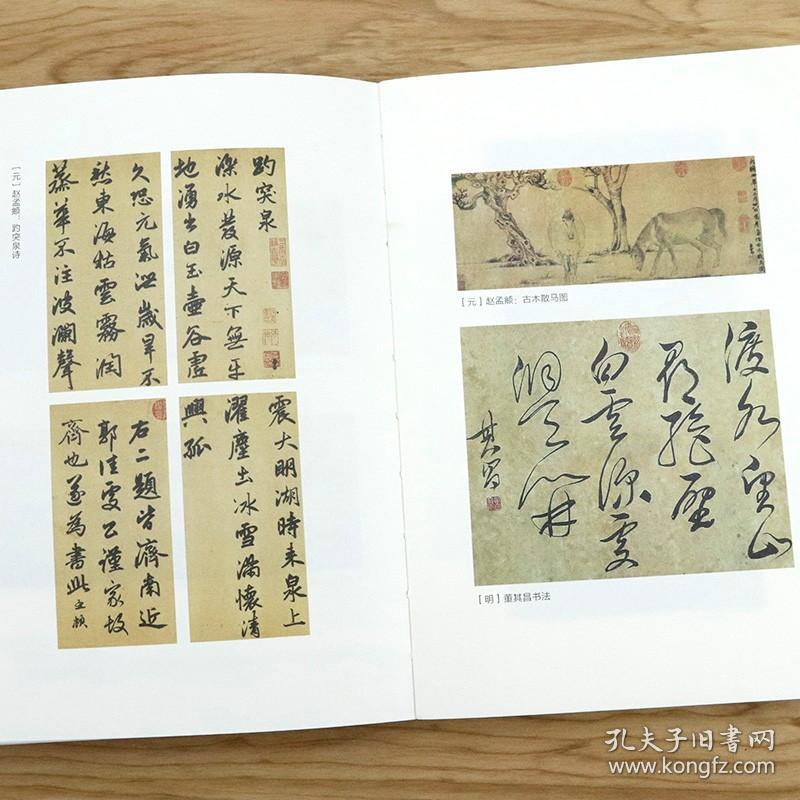 [元] 赵孟頫：趵突泉诗
趵突泉
濼水發源天下無平
地湧出白玉壺谷虛
久恐元氣泄歲旱不
愁東海枯雲霧潤
蒸華不注波瀾聲
震大明湖時來泉上
濯塵土冰雪滿懷清
興孤
右二題皆濟南近
郭佳處公謹家故
齊也遂為書此 孟頫
[元] 赵孟頫：古木散马图
渡水山
絕壁
白雲處
洞天開
其昌
[明] 董其昌书法
孔夫子旧书网
www.kongfz.com